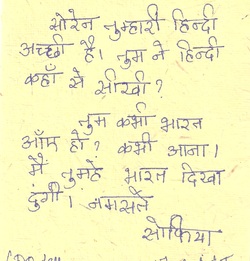 सोरेन तुम्हारी हिन्दी
अच्छी है। तुम ने हिन्दी
कहाँ से सीखी?
तुम कभी भारत
आँए हो? कभी आना।
मैं तुमहे भारत दिखा
दुंगी। नमसते
सोफिया